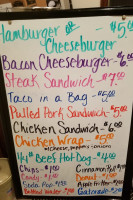 Hamburger -$5.00
Cheeseburger
Bacon Cheeseburger-$6.00
Steak Sandwich-$7.00
Taco in a Bag-$5.00
Pulled Pork Sandwich-$5.00
Chicken Sandwich-$6.00
Chicken Wrap-$5.00
w/cheese, peppers, onions
1/4 lb Beef Hot Dog-$4.00
Chips-$1.00
Candy-$1.00
Soda Pop-
Cinnamon
Donut
Apple Fritter-
Water-
Gatorade-